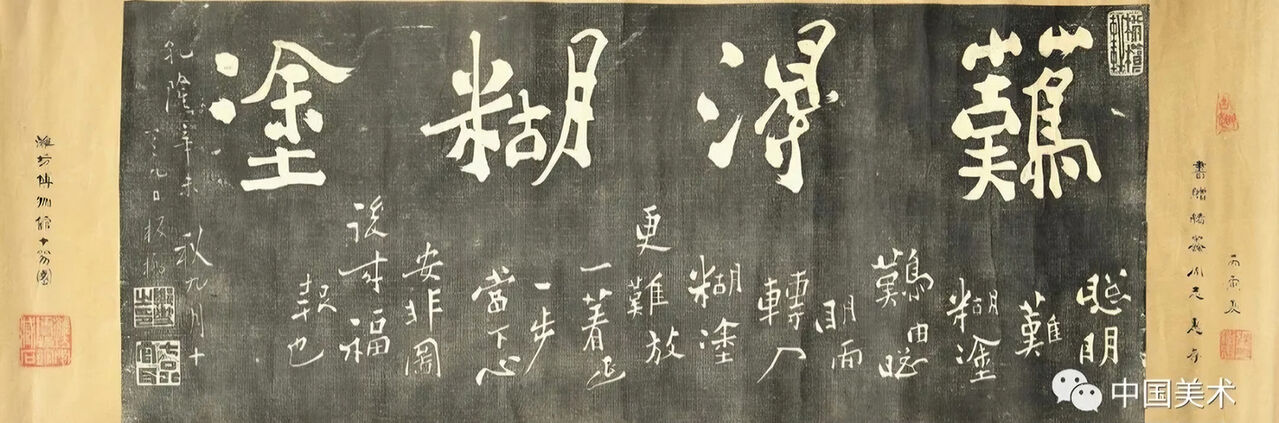 丙寅夏
難得糊塗
聰明
難
糊塗
難由聰
明而
轉入
糊塗
更難放
一著退
一步
當下心
安非圖
後來福
報也
乾隆辛未秋九月十
有九日板橋
濰坊博物館十笏園
中国美术